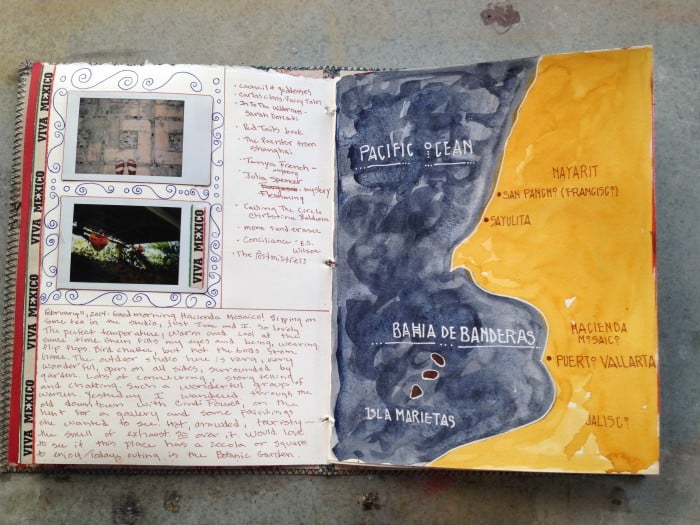 VIVA MEXICO
VIVA MEXICO
VIVA MEXICO
VIVA MEXICO
VIVA MEXICO
VIVA MEXICO
goddesses
Fairy Tales
In To The Wilderness
Sarah
Red Tails book
The Painter from
Shanghai
Tanya French -
mystery
Julia Spencer
mystery
Fleming
Calling The Circle
Christina Baldwin
more sand crawl
Conciliance - E.O.
Wilson
The Postmistress
February, 2014. Good morning Hacienda Mosaico! Sipping on
some tea in the studio, just Jane and I. So lovely.
The perfect temperature, warm and cool at the
same time. Green fills my eyes and being, wearing
flip flops. Bird chatter, but not the birds from
home. The outdoor studio here is very, very
wonderful, open on all sides, surrounded by
garden. Lots of connecting, story telling
and chatting, such a wonderful group of
women. Yesterday I wandered through the
old downtown with Cindi Powell on The
hunt for a gallery and some paintings
she wanted to see. Hot, crowded, touristy -
the smell of exhaust all over it. Would love
to see if this place has a zocolo or square
to enjoy. Todays outing is the Botanic Garden.
PACIFIC OCEAN
NAYARIT
SAN PANCHO (FRANCISCO)
SAYULITA
BAHIA DE BANDERAS
HACIENDA
MOSAICO
PUERTO VALLARTA
ISLA MARIETAS
JALISCO